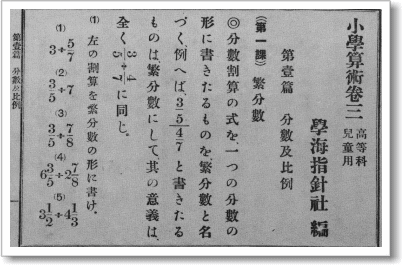 小學算術卷三 高等科兒童用
學海指針社 編
第壹篇 分數及比例
(第一課) 繁分數
◎分數割算の式を一つの分數の
形に書きたるものを繁分數と名
づく.例へば, 3/5/4/7 と書きたる
ものは,繁分數にして,其の意義は,
全く 3/5÷4/7 に同じ.
(1) 左の割算を繁分數の形に書け.
(1) 3÷5/7
(2) 3/5÷7
(3) 3/5÷7/8
(4) 6 3/5÷2 7/8
(5) 3 1/2÷4 1/3
第壹篇 分數及比例
一